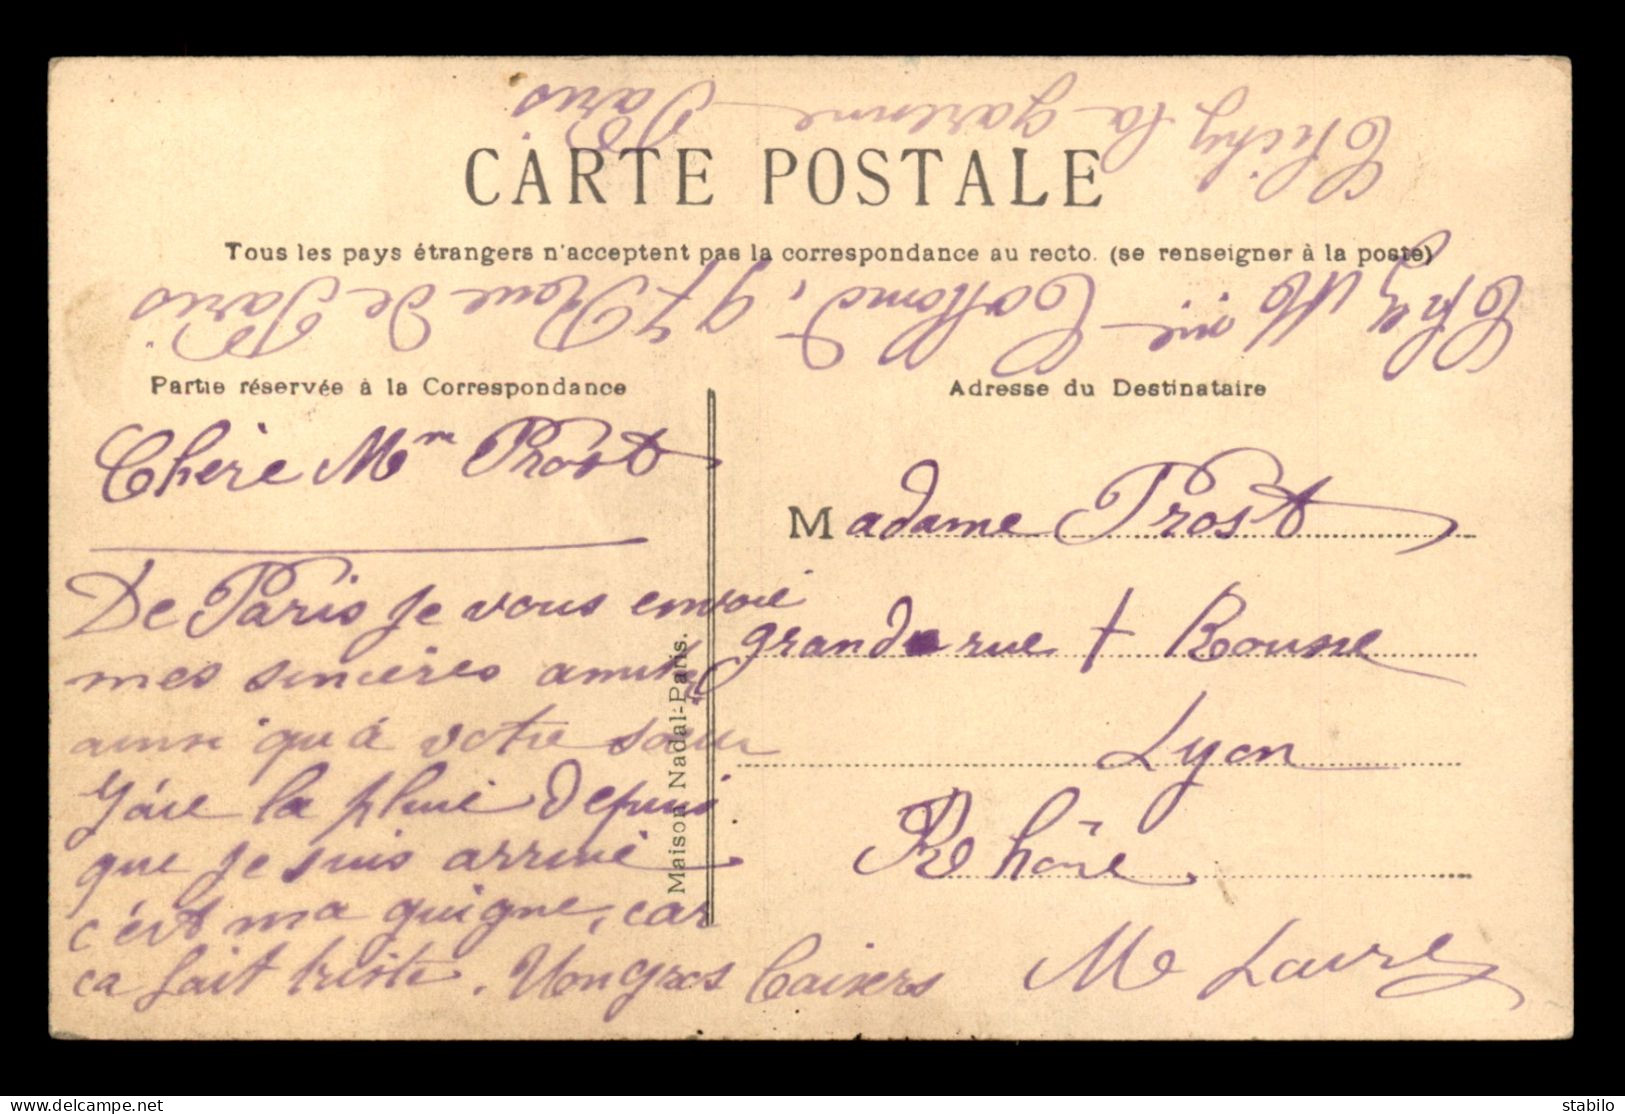 CARTE POSTALE
Tous les pays étrangers n'acceptent pas la correspondance au recto. (se renseigner à la poste)
Partie réservée à la Correspondance
Adresse du Destinataire
Chère Mm Prost
De Paris je vous envoie
mes sincères amitiés
ainsi qu'à votre sœur
J'aie la pluie depuis
que je suis arrivé
c'est ma guigne, car
ca fait triste. Un gros baisers
Me Laure
Madame Prost
grande rue + Rousse
Lyon
Rhône
Maison Nadal-Paris.
Chez Mme 97 Rue de Paris
Clichy la garenne
Paris
delcampe.net
stabilo